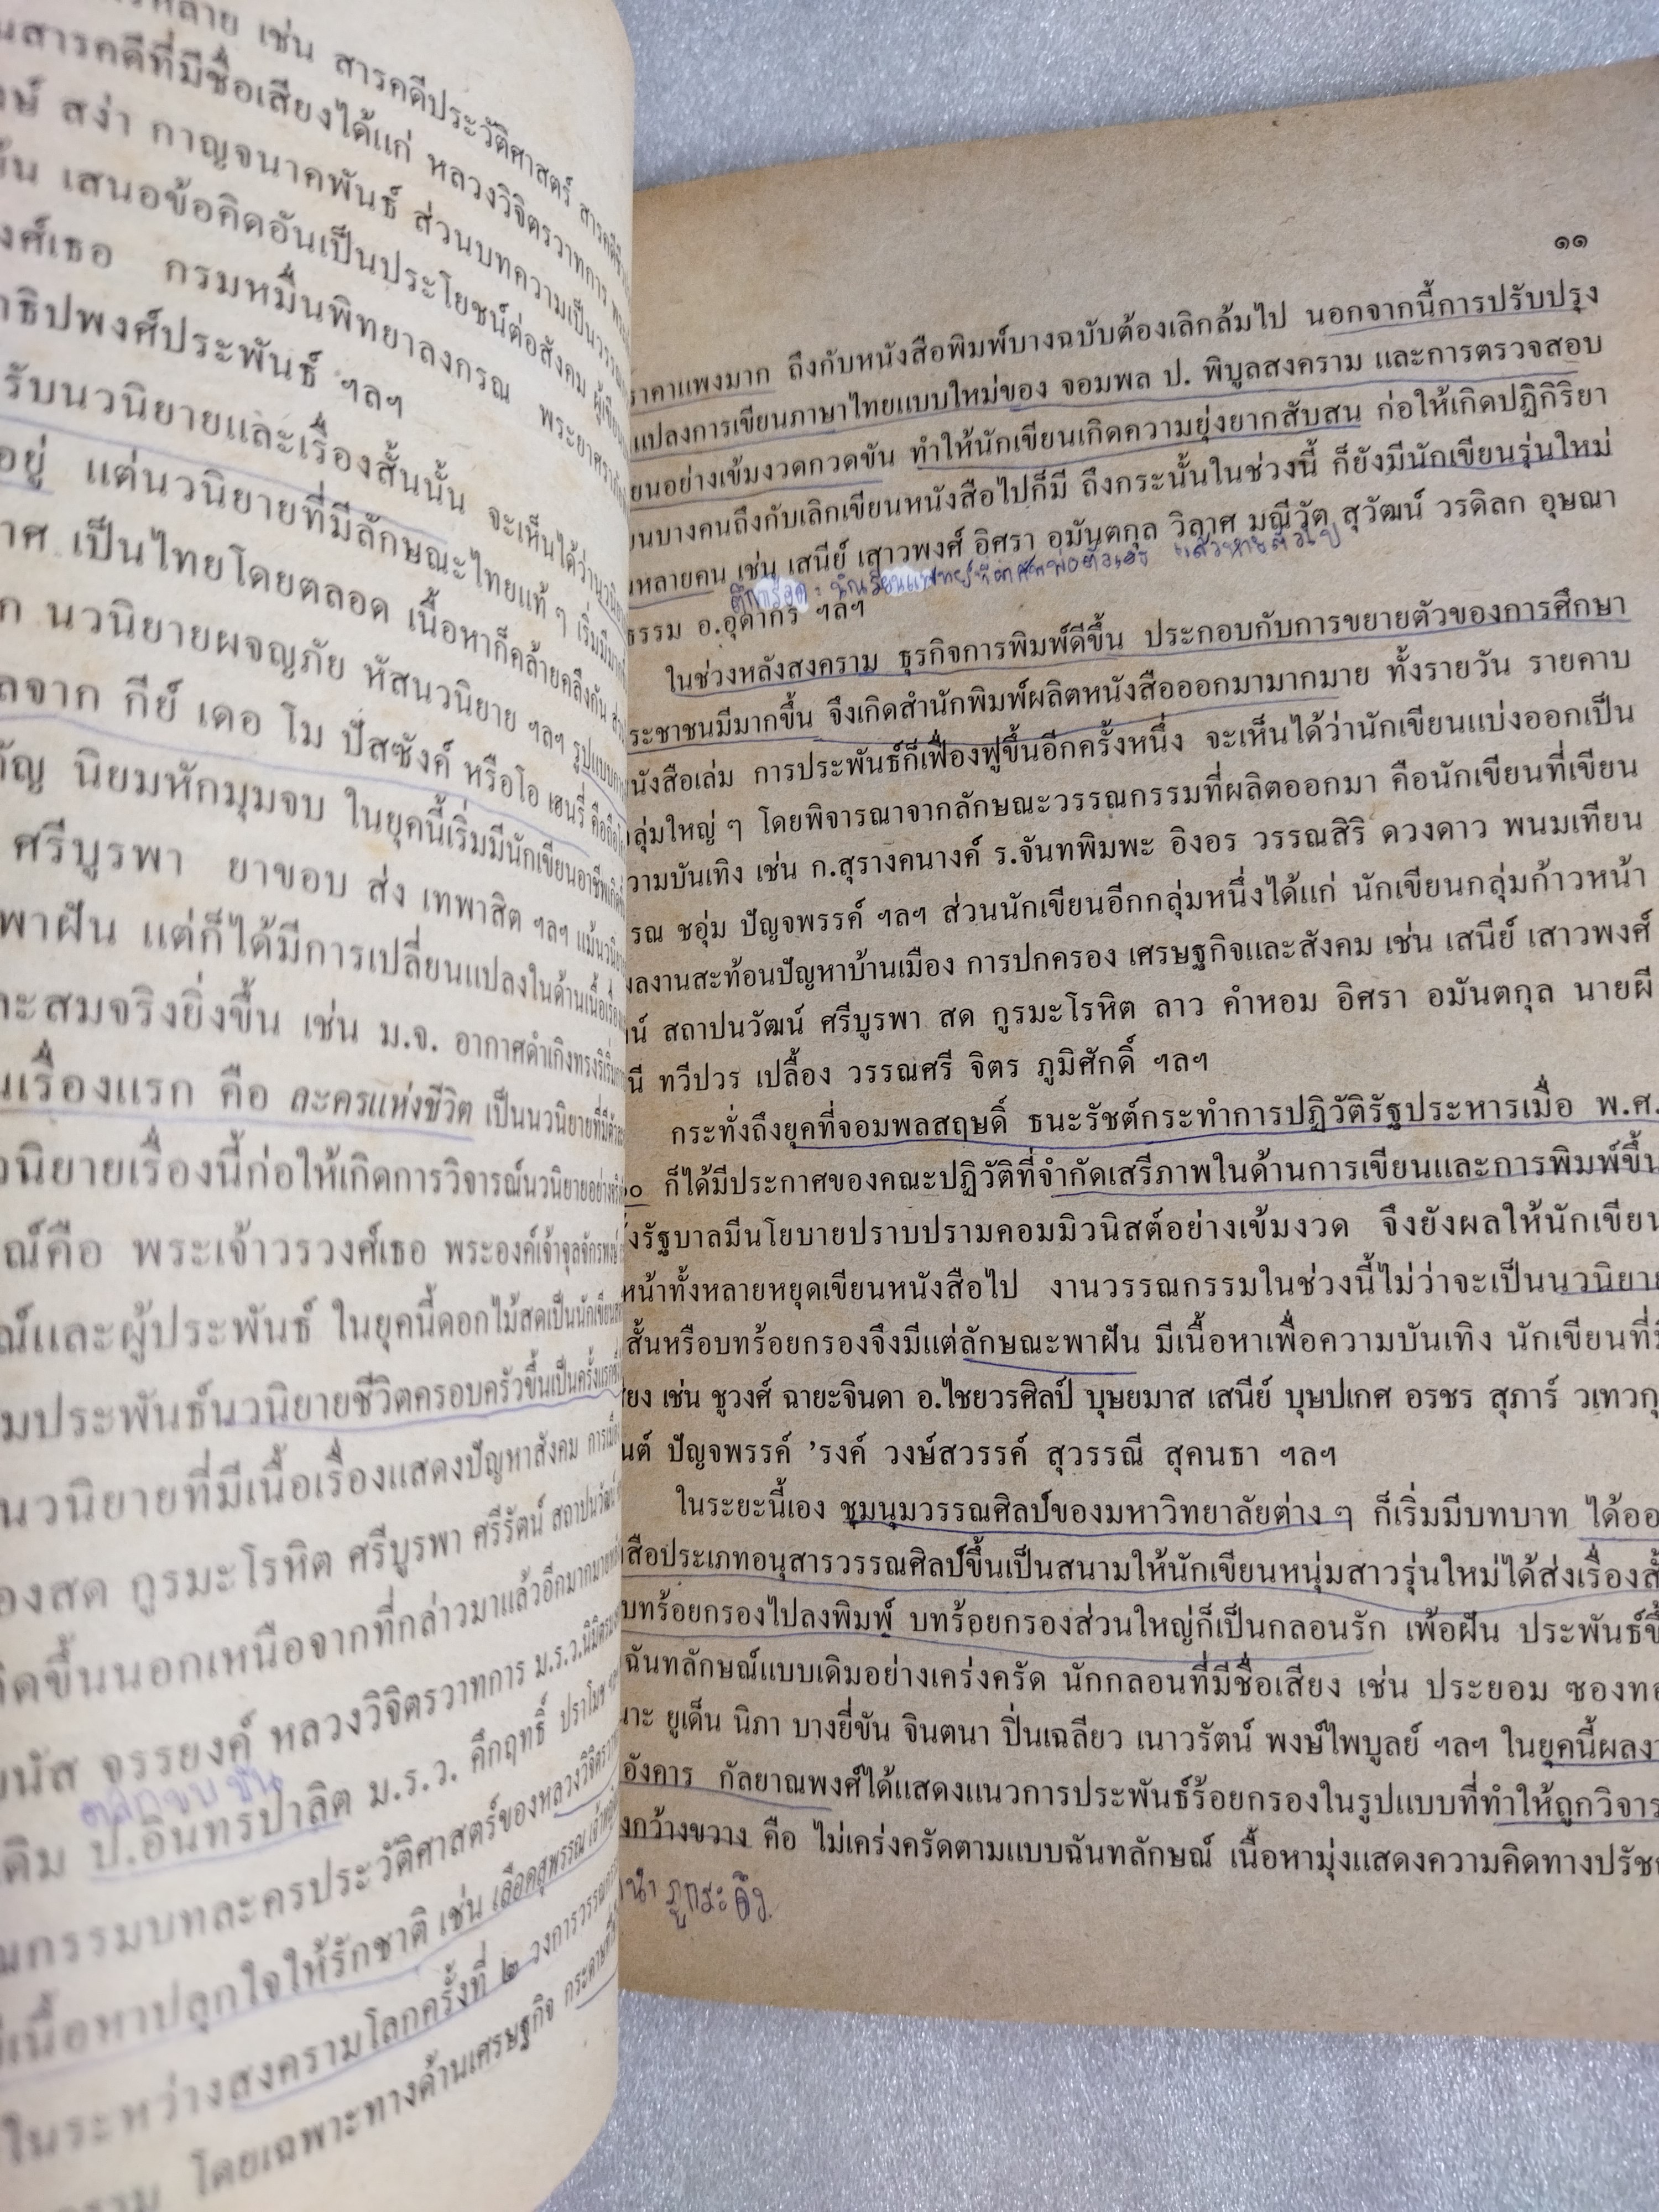 เช่น สารคดีประวัติศาสตร์
สารคดีที่มีชื่อเสียงได้แก่ หลวงวิจิตรวาทการ
สง่า กาญจนาคพันธ์ ส่วนบทความเป็น
เสนอข้อคิดอันเป็นประโยชน์ต่อสังคม
กรมหมื่นพิทยาลงกรณ
พงศ์ประพันธ์ ฯลฯ
รับนวนิยายและเรื่องสั้นนั้น จะเห็นได้ว่า
อยู่ แต่นวนิยายที่มีลักษณะไทยแท้ ๆ
เป็นไทยโดยตลอด เนื้อหาก็คล้ายคลึงกัน
นวนิยายผจญภัย หัสนวนิยาย ฯลฯ
จาก กีย์ เดอ โม ปัสซังค์ หรือโอ เฮนรี่
นิยมหักมุมจบ ในยุคนี้เริ่มมีนักเขียนอาชีพ
ศรีบูรพา ยาขอบ ส่ง เทพาสิต ฯลฯ
พาฝัน แต่ก็ได้มีการเปลี่ยนแปลงในด้านเนื้อเรื่อง
สมจริงยิ่งขึ้น เช่น ม.จ. อากาศดำเกิงทรงริเริ่ม
เรื่องแรก คือ ละครแห่งชีวิต เป็นนวนิยายที่
นิยายเรื่องนี้ก่อให้เกิดการวิจารณ์นวนิยาย
คือ พระเจ้าวรวงศ์เธอ พระองค์เจ้าจุลจักรพงษ์
และผู้ประพันธ์ ในยุคนี้ดอกไม้สดเป็นนักเขียน
ประพันธ์นวนิยายชีวิตครอบครัวขึ้นเป็นครั้งแรก
นวนิยายที่มีเนื้อเรื่องแสดงปัญหาสังคม
สด กูรมะโรหิต ศรีบูรพา ศรีรัตน์ สถาปนวัฒน์
ขึ้นนอกเหนือจากที่กล่าวมาแล้วอีกมากมาย
จรรยงค์ หลวงวิจิตรวาทการ ม.ร.ว.นิมิตรมงคล
ตลกขบขัน
ป.อินทรปาลิต ม.ร.ว. คึกฤทธิ์ ปราโมช
กรรมบทละครประวัติศาสตร์ของหลวงวิจิตร
เนื้อหาปลุกใจให้รักชาติ เช่น เลือดสุพรรณ
ในระหว่างสงครามโลกครั้งที่ ๒ วงการวรรณกรรม
โดยเฉพาะทางด้านเศรษฐกิจ
๑๑
ราคาแพงมาก ถึงกับหนังสือพิมพ์บางฉบับต้องเลิกล้มไป นอกจากนี้การปรับปรุง
แปลงการเขียนภาษาไทยแบบใหม่ของ จอมพล ป. พิบูลสงคราม และการตรวจสอบ
อย่างเข้มงวดกวดขัน ทำให้นักเขียนเกิดความยุ่งยากสับสน ก่อให้เกิดปฏิกิริยา
บางคนถึงกับเลิกเขียนหนังสือไปก็มี ถึงกระนั้นในช่วงนี้ ก็ยังมีนักเขียนรุ่นใหม่
หลายคน เช่น เสนีย์ เสาวพงศ์ อิศรา อมันตกุล วิลาศ มณีวัต สุวัฒน์ วรดิลก อุษณา
ธรรม อ.อุดากร ฯลฯ
ในช่วงหลังสงคราม ธุรกิจการพิมพ์ดีขึ้น ประกอบกับการขยายตัวของการศึกษา
ประชาชนมีมากขึ้น จึงเกิดสำนักพิมพ์ผลิตหนังสือออกมามากมาย ทั้งรายวัน รายคาบ
หนังสือเล่ม การประพันธ์ก็เฟื่องฟูขึ้นอีกครั้งหนึ่ง จะเห็นได้ว่านักเขียนแบ่งออกเป็น
กลุ่มใหญ่ ๆ โดยพิจารณาจากลักษณะวรรณกรรมที่ผลิตออกมา คือนักเขียนที่เขียน
ความบันเทิง เช่น ก.สุรางคนางค์ ร.จันทพิมพะ อิงอร วรรณสิริ ดวงดาว พนมเทียน
รณ ชอุ่ม ปัญจพรรค์ ฯลฯ ส่วนนักเขียนอีกกลุ่มหนึ่งได้แก่ นักเขียนกลุ่มก้าวหน้า
ผลงานสะท้อนปัญหาบ้านเมือง การปกครอง เศรษฐกิจและสังคม เช่น เสนีย์ เสาวพงศ์
สถาปนวัฒน์ ศรีบูรพา สด กูรมะโรหิต ลาว คำหอม อิศรา อมันตกุล นายผี
ทวีปวร เปลื้อง วรรณศรี จิตร ภูมิศักดิ์ ฯลฯ
กระทั่งถึงยุคที่จอมพลสฤษดิ์ ธนะรัชต์กระทำการปฏิวัติรัฐประหารเมื่อ พ.ศ.
ก็ได้มีประกาศของคณะปฏิวัติที่จำกัดเสรีภาพในด้านการเขียนและการพิมพ์ขึ้น
รัฐบาลมีนโยบายปราบปรามคอมมิวนิสต์อย่างเข้มงวด จึงยังผลให้นักเขียน
หน้าทั้งหลายหยุดเขียนหนังสือไป งานวรรณกรรมในช่วงนี้ไม่ว่าจะเป็นนวนิยาย
สั้นหรือบทร้อยกรองจึงมีแต่ลักษณะพาฝัน มีเนื้อหาเพื่อความบันเทิง นักเขียนที่
เช่น ชูวงศ์ ฉายะจินดา อ.ไชยวรศิลป์ บุษยมาส เสนีย์ บุษปเกศ อรชร สุภาร์ วเทวกุ
ปัญจพรรค์ ’รงค์ วงษ์สวรรค์ สุวรรณี สุคนธา ฯลฯ
ในระยะนี้เอง ชุมนุมวรรณศิลป์ของมหาวิทยาลัยต่าง ๆ ก็เริ่มมีบทบาท ได้ออ
สือประเภทอนุสารวรรณศิลป์ขึ้นเป็นสนามให้นักเขียนหนุ่มสาวรุ่นใหม่ได้ส่งเรื่องสั้
บทร้อยกรองไปลงพิมพ์ บทร้อยกรองส่วนใหญ่ก็เป็นกลอนรัก เพ้อฝัน ประพันธ์ขึ้
ฉันทลักษณ์แบบเดิมอย่างเคร่งครัด นักกลอนที่มีชื่อเสียง เช่น ประยอม ซองทอ
ยูเด็น นิภา บางยี่ขัน จินตนา ปิ่นเฉลียว เนาวรัตน์ พงษ์ไพบูลย์ ฯลฯ ในยุคนี้ผลงา
อังคาร กัลยาณพงศ์ได้แสดงแนวการประพันธ์ร้อยกรองในรูปแบบที่ทำให้ถูกวิจาร
กว้างขวาง คือ ไม่เคร่งครัดตามแบบฉันทลักษณ์ เนื้อหามุ่งแสดงความคิดทางปรัช
ภูกระดึง